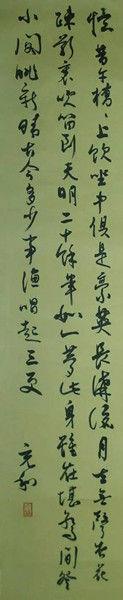 憶昔午橋〻上飲坐中俱是豪英長溝流月去無聲杏花
疎影裏吹笛到天明二十餘年如一夢此身雖在堪驚閒登
小閣眺新晴古今多少事漁唱起三更
元和